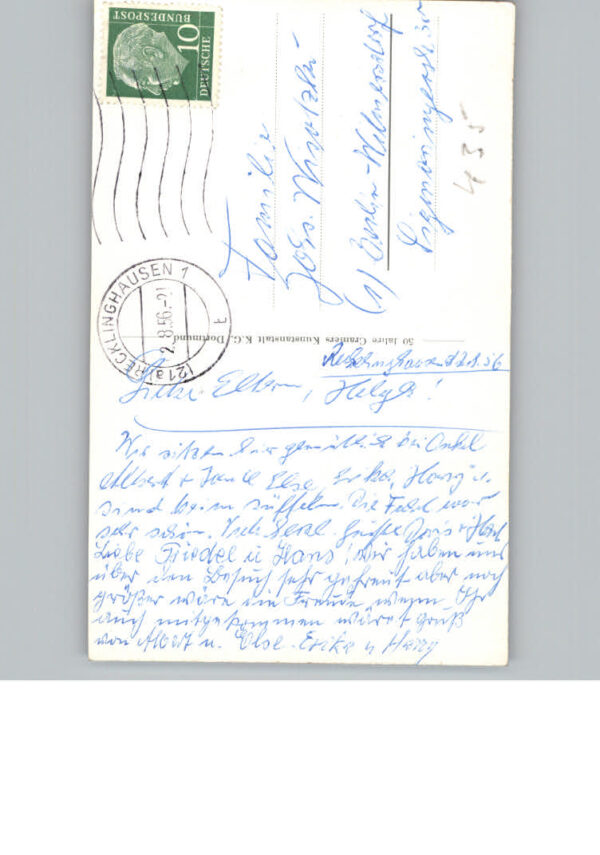 DEUTSCHE
BUNDESPOST
10
RECKLINGHAUSEN 1
(21a)
2.8.56.-21
t
Familie
Johs.
(1) Berlin-Wilmersdorf
Sigmaringerstr. 30
435
50 Jahre Craniers Kunstanstalt K.G., Dortmund
Recklinghausen 2.8.56
Liebe Eltern, Helga!
Wir sitzen hier gemütlich bei Onkel
Albert + Tante Else, Erika, Harry u.
sind beim süffeln. Die Fahrt war
sehr schön. Viele herzl. Grüße
Liebe Friedel u. Hans, wir haben uns
über den Besuch sehr gefreut aber noch
größer wäre die Freude wenn Ihr
auch mitgekommen wäret Gruß
von Albert u. Else. Erika u Harry